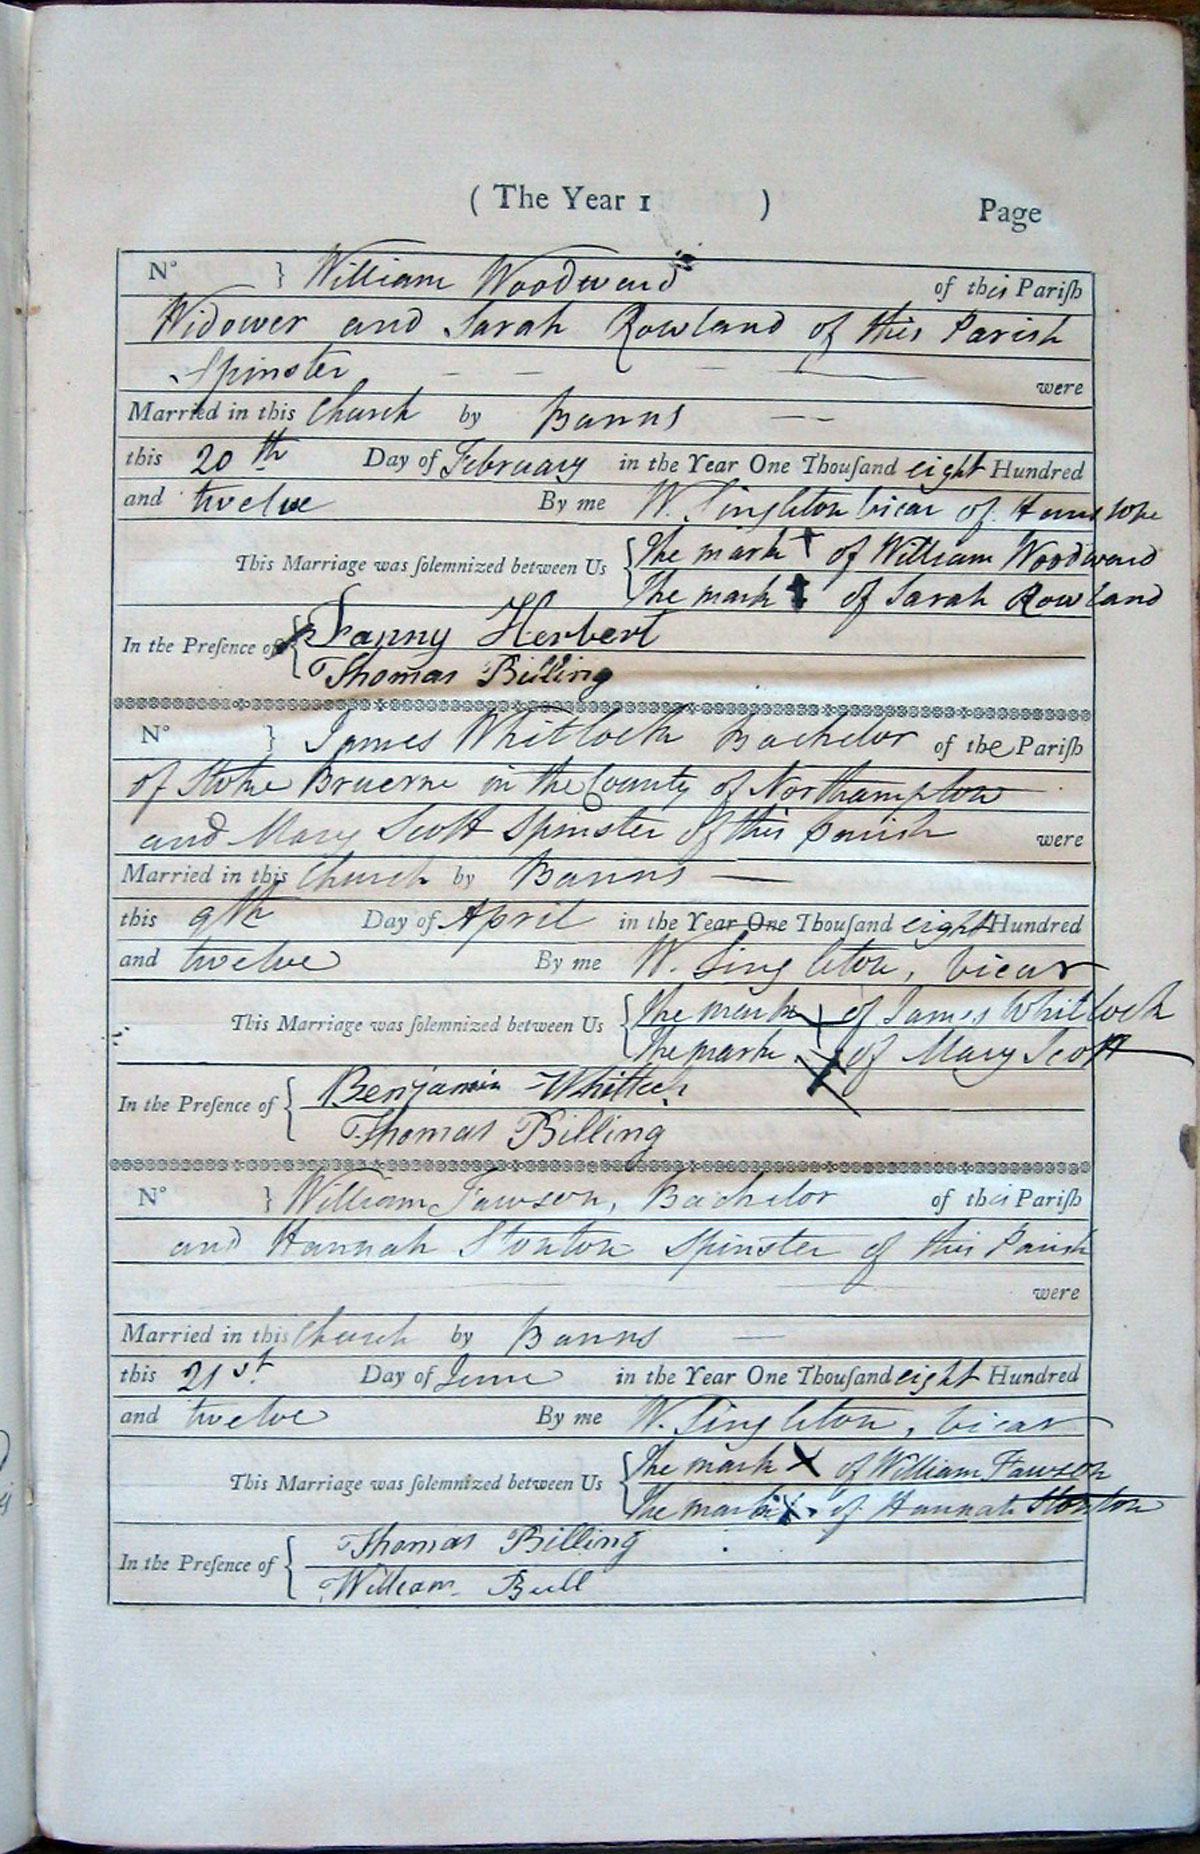 ( The Year 1 )
Page
N° } William Woodward of this Pariſh
Widower and Sarah Rowland of this Parish
Spinster — — — were
Married in this Church by Banns —
this 20th Day of February in the Year One Thouſand eight Hundred
and twelve By me W. Singleton Vicar of Hanslope
This Marriage was ſolemnized between Us { The mark + of William Woodward
The mark + of Sarah Rowland
In the Preſence of { Fanny Herbert
Thomas Billing
N° } James Whitlock Bachelor of the Pariſh
of Stoke Bruerne in the County of Northampton
and Mary Scott Spinster of this Parish were
Married in this Church by Banns —
this 9th Day of April in the Year One Thouſand eight Hundred
and twelve By me W. Singleton, Vicar
This Marriage was ſolemnized between Us { The mark X of James Whitlock
The mark X of Mary Scott
In the Preſence of { Benjamin
Thomas Billing
N° } William Fawson, Bachelor of this Pariſh
and Hannah Stonton Spinster of this Parish
were
Married in this Church by Banns —
this 21st Day of June in the Year One Thouſand eight Hundred
and twelve By me W. Singleton, Vicar
This Marriage was ſolemnized between Us { The mark X of William Fawson
The mark X of Hannah Stonton
In the Preſence of { Thomas Billing
William Bull